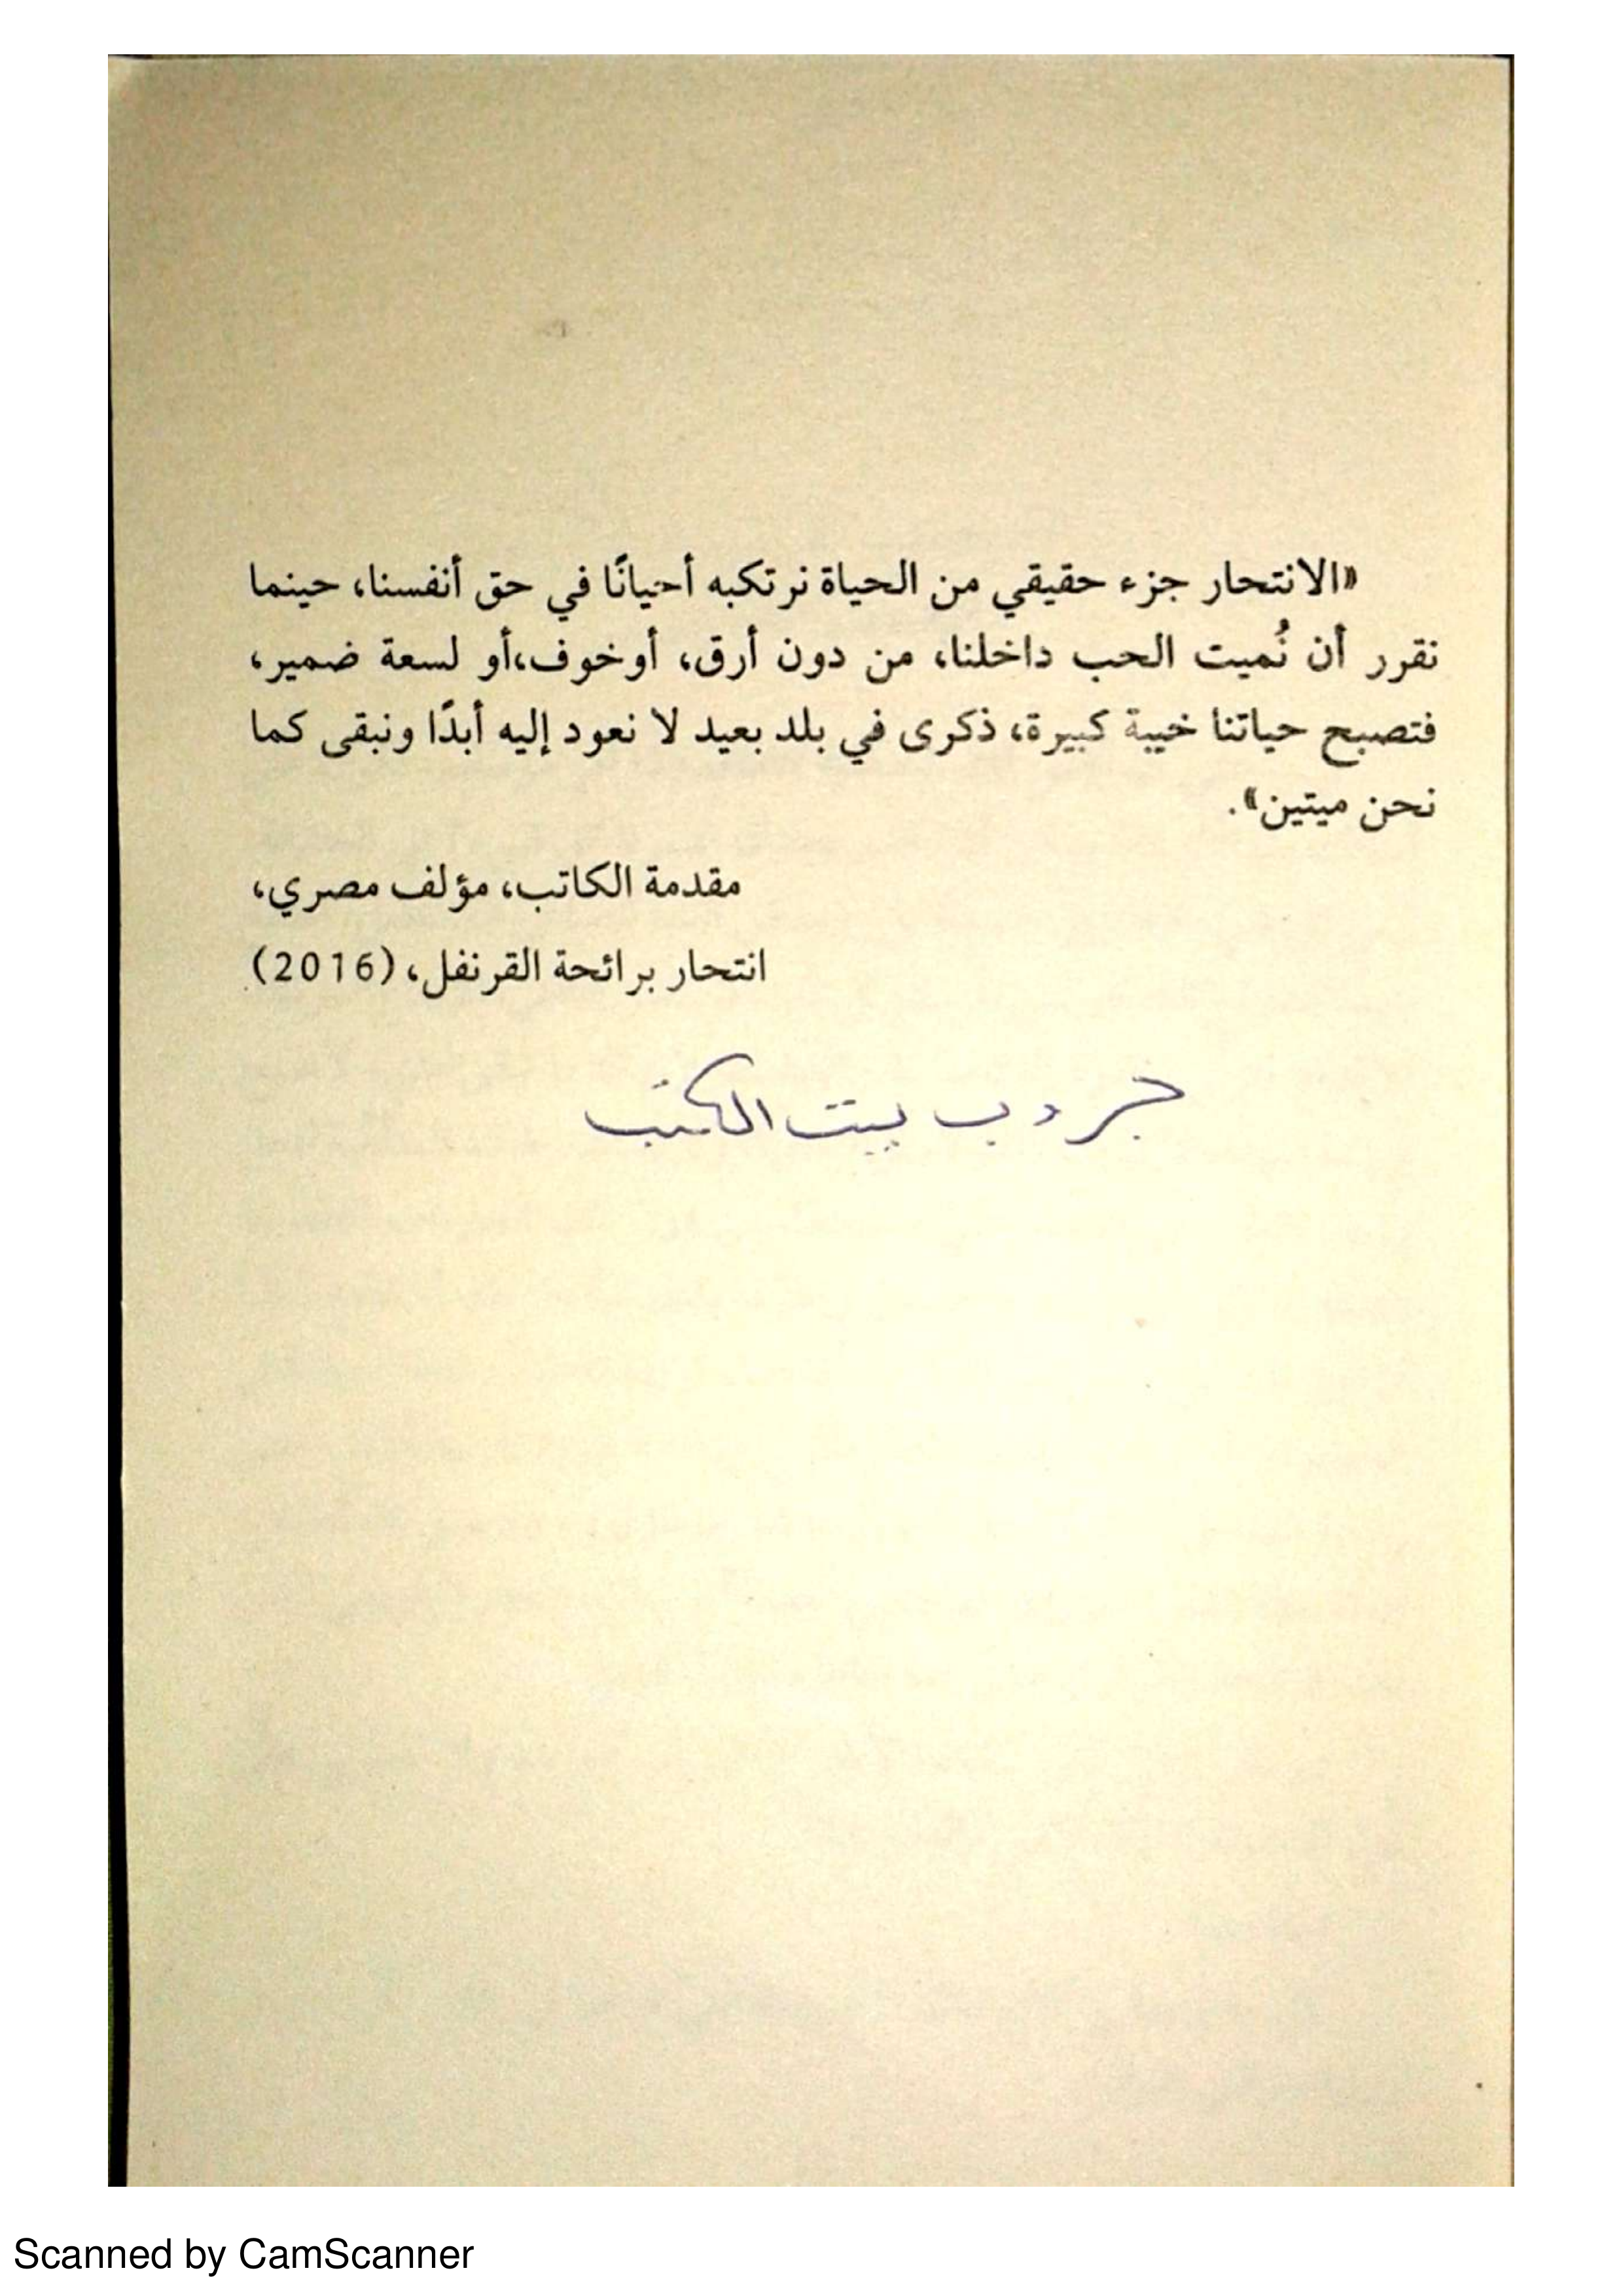 «الانتحار جزء حقيقي من الحياة نرتكبه أحيانًا في حق أنفسنا، حينما
نقرر أن نُميت الحب داخلنا، من دون أرق، أو خوف،أو لسعة ضمير،
فتصبح حياتنا خيبة كبيرة، ذكرى في بلد بعيد لا نعود إليه أبدًا ونبقى كما
نحن ميتين».
مقدمة الكاتب، مؤلف مصري،
انتحار برائحة القرنفل، (2016).
جروب بيت الكتب
Scanned by CamScanner